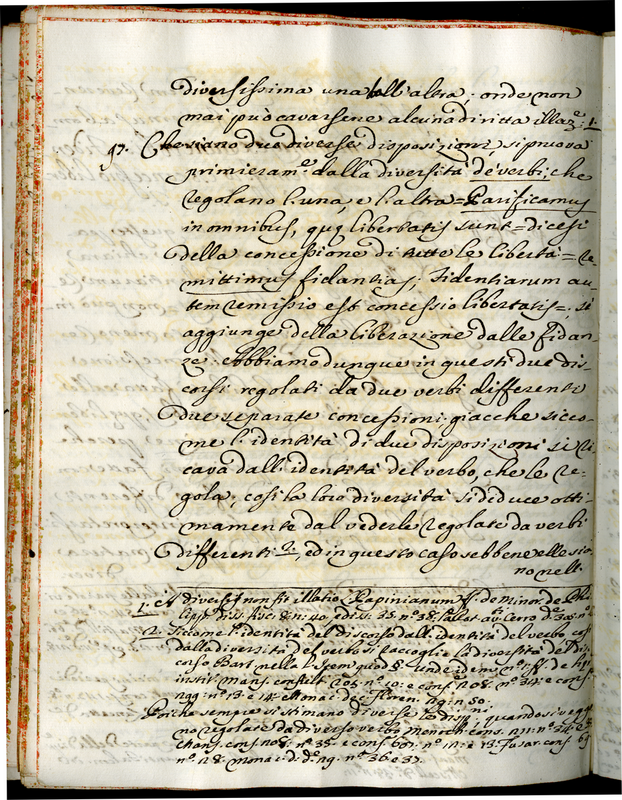 diversissima una dall'altra; onde non
mai può cavarsene alcuna diritta illaz.e 1.
97. Che siano due diverse disposizioni si pruova
primieram.e dalla diversità de' verbi, che
regolano l'una, e l'altra = Parificamus
in omnibus, quę libertatis sunt = dicesi
della concessione di tutte le libertà = re-
mittimus fidantias; fidentiarum au-
tem remissio est concessio libertatis = si
aggiunge della liberazione dalle fidan-
ze. Abbiamo dunque in questi due dis-
corsi regolati da due verbi differenti
due separate concessioni: giacche sicco-
me l'identità di due disposizioni si ri-
cava dall'identità del verbo, che le re-
gola, così la loro diversità si deduce otti-
mamente dal vederle regolate da verbi
differenti 2., ed in questo caso sebbene elle sia-
no nell'
1. A diversis non fit illatio Papinianum ff. de Minor. de
n.o 40. n.o 38.
2. Siccome l'identità del discorso dall'identità del verbo, così
dalla diversità del verbo si raccoglie la diversità del dis-
corso Bart. nella l. Item quod §. unde idem n.o 1. ff. de
instit. e cons. 208. n.o 34. e cons.
299. n.o 13. e 14. Monac. dec. Floren. 29. n. 50.
Poiche sempre si stimano diverse le disp.ni, quandosi vegg-
no regolate da diverso verbo Menoch. cons.
cons. n.o 35. e cons. 601. n.o 11. e 13. Fusar. cons.
n.o 28. Monac. d. d.o 29. n.o 36 e 37.